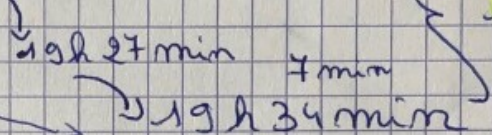 19h 27 min
7 min
19 h 34 min